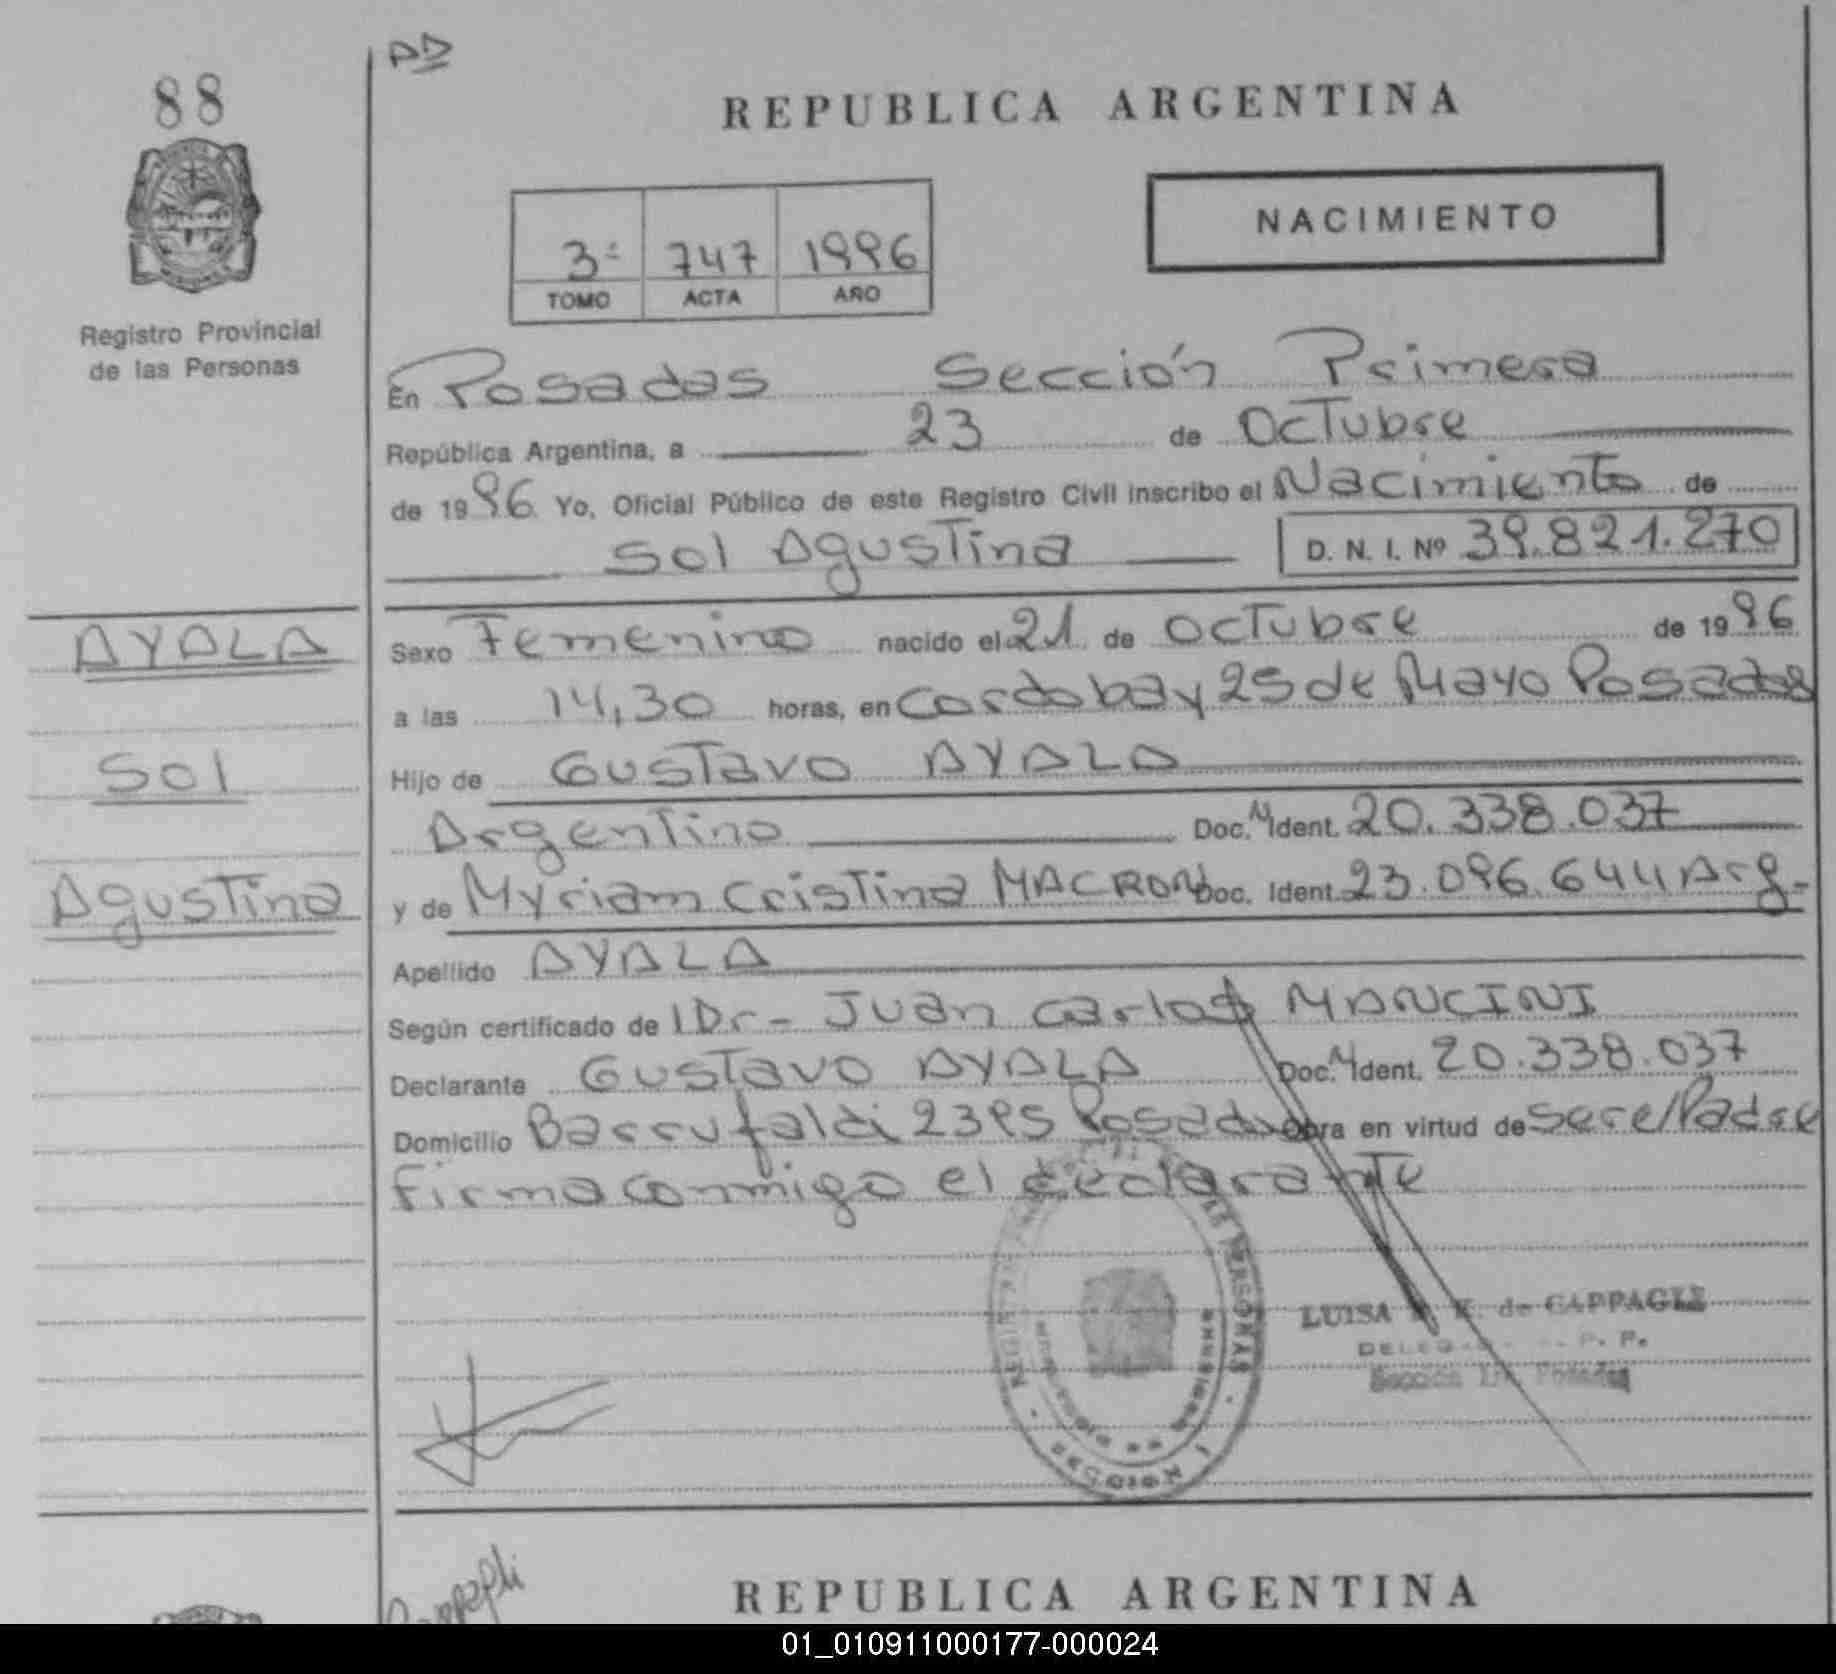 88
REPUBLICA ARGENTINA
3ª 747 1996
TOMO ACTA AÑO
NACIMIENTO
Registro Provincial
de las Personas
En Posadas Sección Primera
República Argentina, a 23 de Octubre
de 1996 Yo, Oficial Público de este Registro Civil inscribo el Nacimiento de
Sol Agustina D. N. I. Nº 39.821.270
AYALA
Sol
Agustina
Sexo Femenino nacido el 21 de Octubre de 1996
a las 14,30 horas, en Cordoba y 25 de Mayo Posadas
Hijo de Gustavo AYALA
Argentino Doc. N Ident. 20.338.037
y de Myriam Cristina MACRON Doc. Ident. 23.096.644 Arg.
Apellido AYALA
Según certificado de l Dr- Juan Carlos MANCINI
Declarante Gustavo AYALA Doc. N Ident. 20.338.037
Domicilio Barrufaldi 2395 Posadas Obra en virtud de ser el Padre
Firma conmigo el declarante
LUISA de CAPPAGLI
Sección 1ra. Posadas
PERSONAS
SECCION 1
REPUBLICA ARGENTINA
01_010911000177-000024